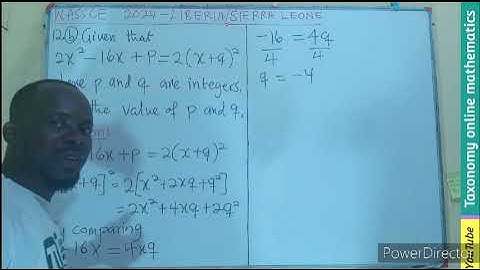 WASSCE 2024-LIBERIA/SIERRE LEONE
12(b) Given that
2x²-16x+P=2(x+q)²
p and q are integers,
the value of p and q.
16x+P=2(x+q)²
+q]²=2[x²+2xq+q²]
=2x²+4xq+2q²
comparing
16x=4xq
-16/4=4q/4
q=-4
Taxonomy online mathematics
YouTube
PowerDirector